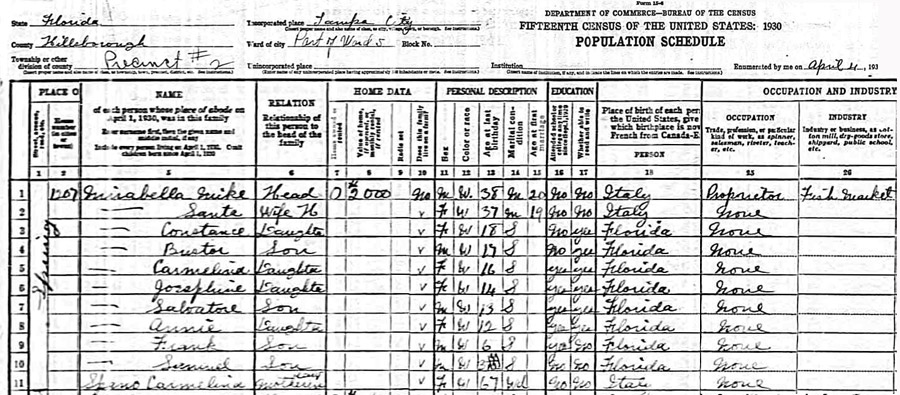 Form 15-6
State Florida
Incorporated place Tampa City
DEPARTMENT OF COMMERCE—BUREAU OF THE CENSUS
County Hillsborough
Ward of city Part of Ward 5 Block No.
FIFTEENTH CENSUS OF THE UNITED STATES: 1930
POPULATION SCHEDULE
Township or other division of county Precinct #2
Unincorporated place
Institution
Enumerated by me on April 4, 193
PLACE O NAME RELATION HOME DATA PERSONAL DESCRIPTION EDUCATION OCCUPATION AND INDUSTRY
of each person whose place of abode on April 1, 1930, was in this family
Enter surname first, then the given name and middle initial, if any
Include every person living on April 1, 1930. Omit children born since April 1, 1930
Relationship of this person to the head of the family
Place of birth of each per the United States, give which birthplace is now French from Canada-E
PERSON
OCCUPATION
Trade, profession, or particular kind of work, as spinner, salesman, riveter, teacher, etc.
INDUSTRY
Industry or business, as cotton mill, dry-goods store, shipyard, public school, etc.
1 2 3 5 6 7 8 9 10 11 12 13 14 15 16 17 18 25 26
1 1207 Mirabella Mike Head O $2000 No M W 38 M 20 No No Italy Proprietor Fish Market
2 — Santa Wife H v F W 37 M 19 No No Italy None
3 — Constance Daughte v F W 18 S No yes Florida None
4 — Buster Son v M W 17 S No yes Florida None
5 — Carmelina Daughte v F W 16 S yes yes Florida None
6 — Josephine Daughte v F W 14 S yes yes Florida None
7 — Salvatore Son v M W 13 S yes yes Florida None
8 — Annie Daughte v F W 12 S yes yes Florida None
9 — Frank Son v M W 6 S yes No Florida None
10 — Son v M W S No No Florida None
11 Carmelina v F W 67 Wd No No Italy None